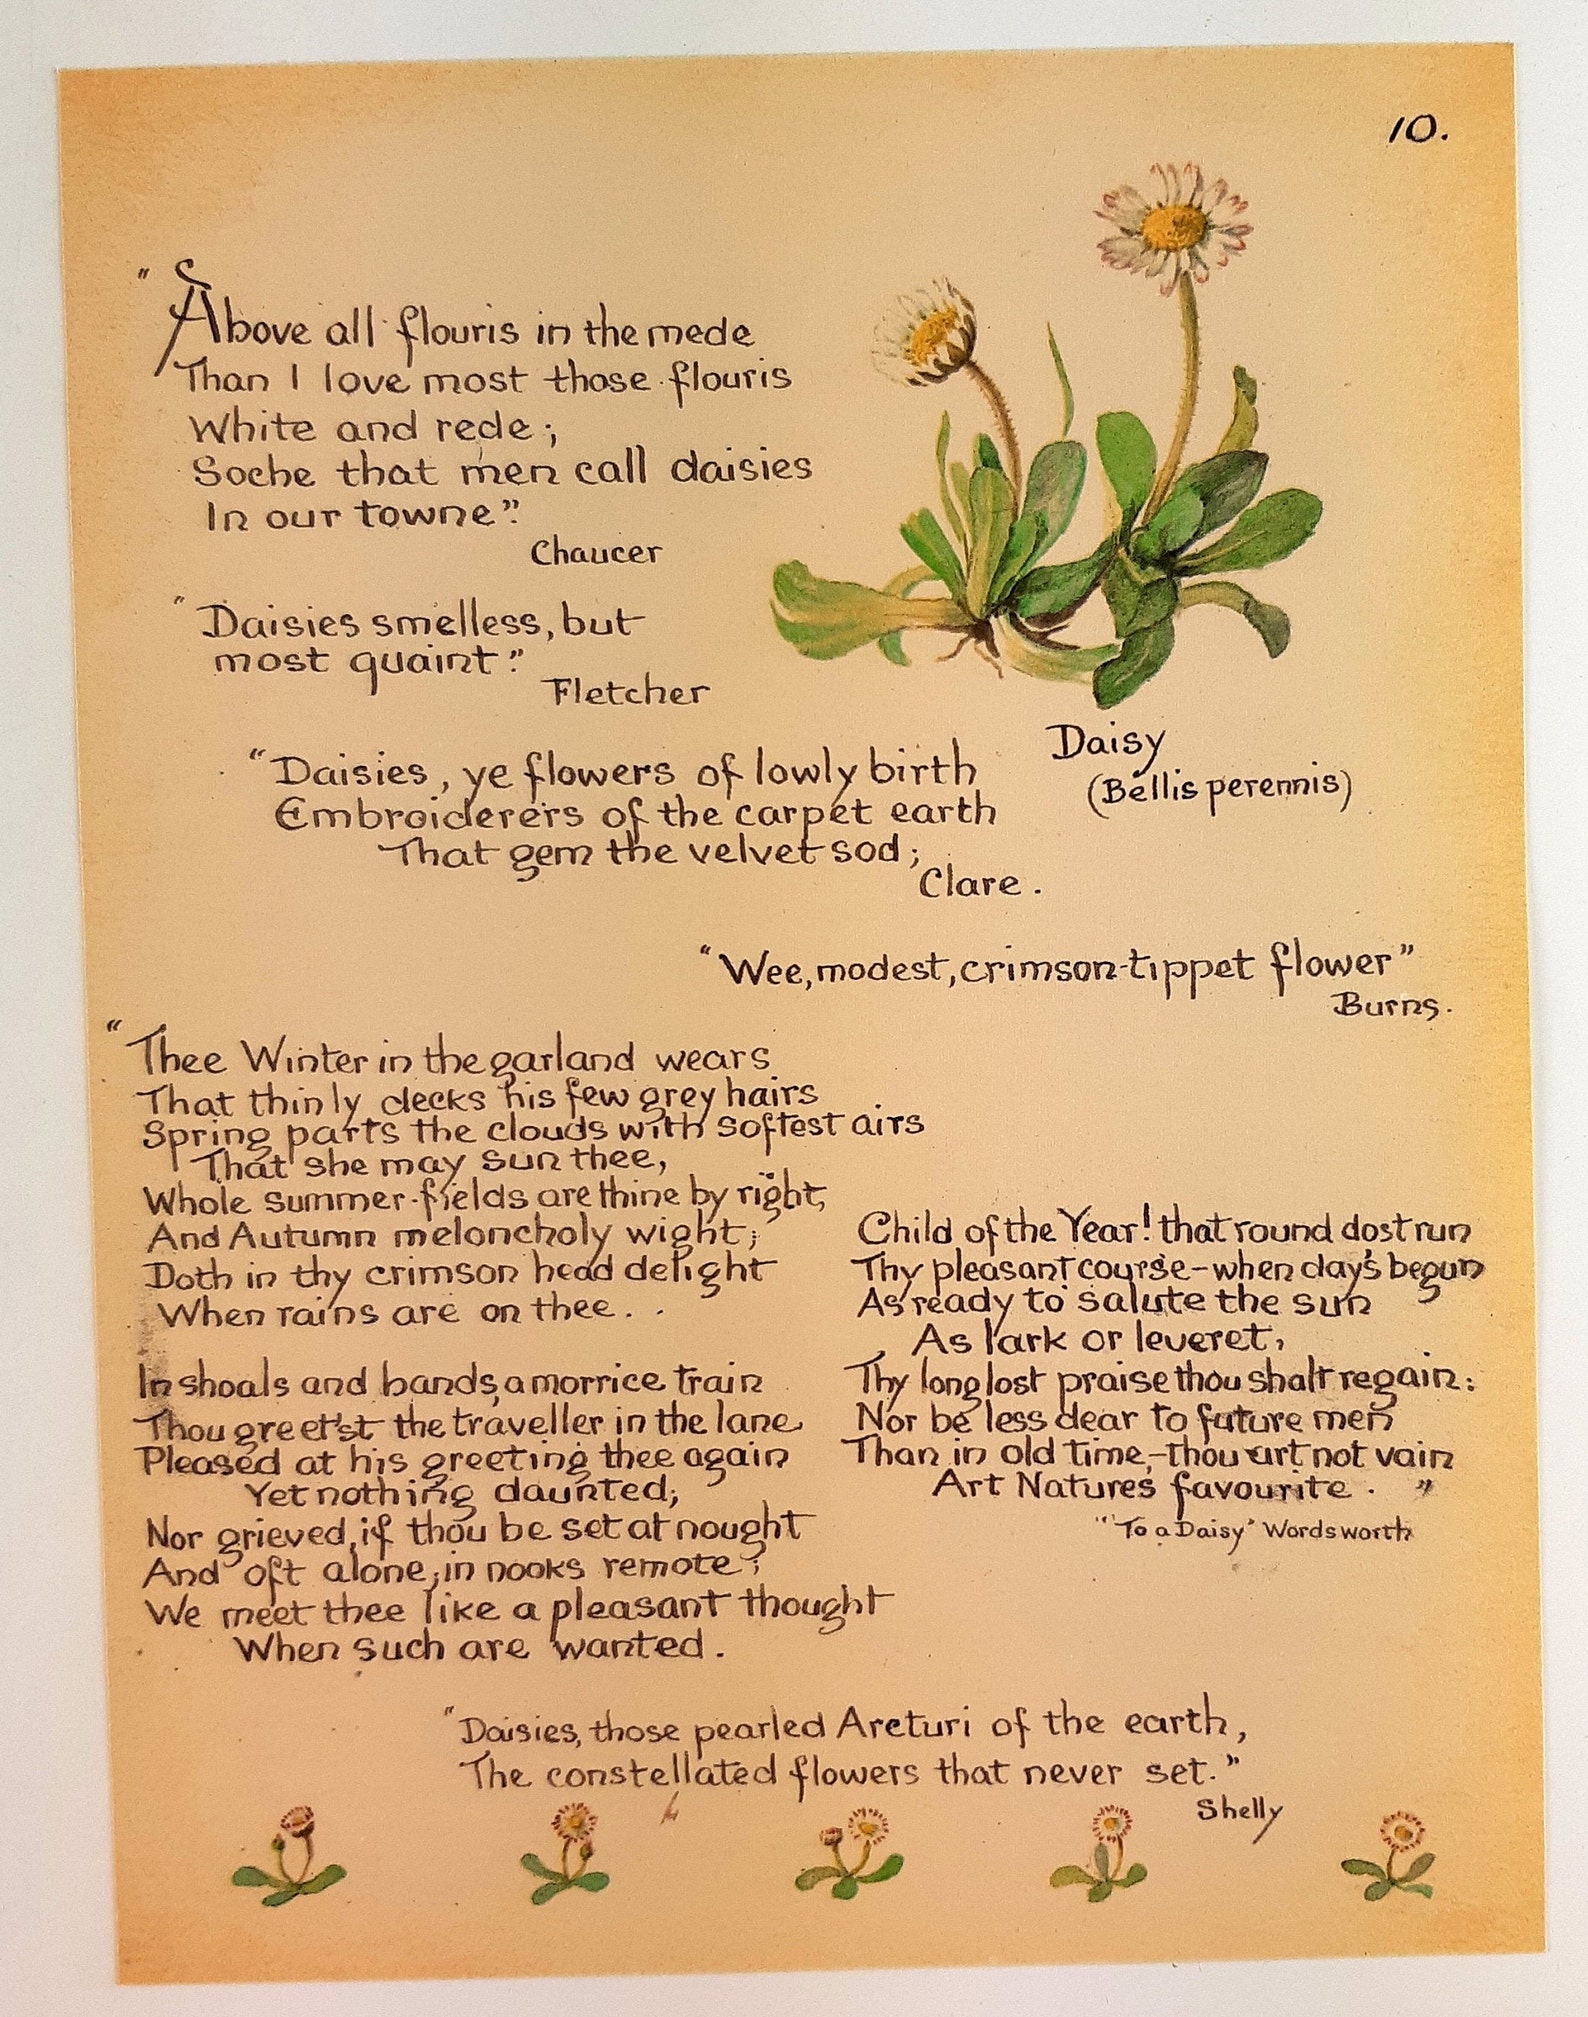 10.
"Above all flouris in the mede
Than I love most those flouris
White and rede;
Soche that men call daisies
In our towne"
Chaucer
"Daisies smelless, but
most quaint"
Fletcher
Daisy
(Bellis perennis)
"Daisies, ye flowers of lowly birth
Embroiderers of the carpet earth
That gem the velvet sod;
Clare.
"Wee, modest, crimson-tippet flower"
Burns.
"Thee Winter in the garland wears
That thinly decks his few grey hairs
Spring parts the clouds with softest airs
That she may sun thee,
Whole summer-fields are thine by right,
And Autumn meloncholy wight;
Doth in thy crimson head delight
When rains are on thee.
In shoals and bands, a morrice train
Thou greet'st the traveller in the lane
Pleased at his greeting thee again
Yet nothing daunted;
Nor grieved, if thou be set at nought
And oft alone, in nooks remote;
We meet thee like a pleasant thought
When such are wanted.
Child of the Year! that round dost run
Thy pleasant course-when day's begun
As ready to salute the sun
As lark or leveret,
Thy long lost praise thou shalt regain:
Nor be less dear to future men
Than in old time,-thou art not vain
Art Nature's favourite. "
"To a Daisy" Wordsworth
"Daisies, those pearled Arcturi of the earth,
The constellated flowers that never set."
Shelly